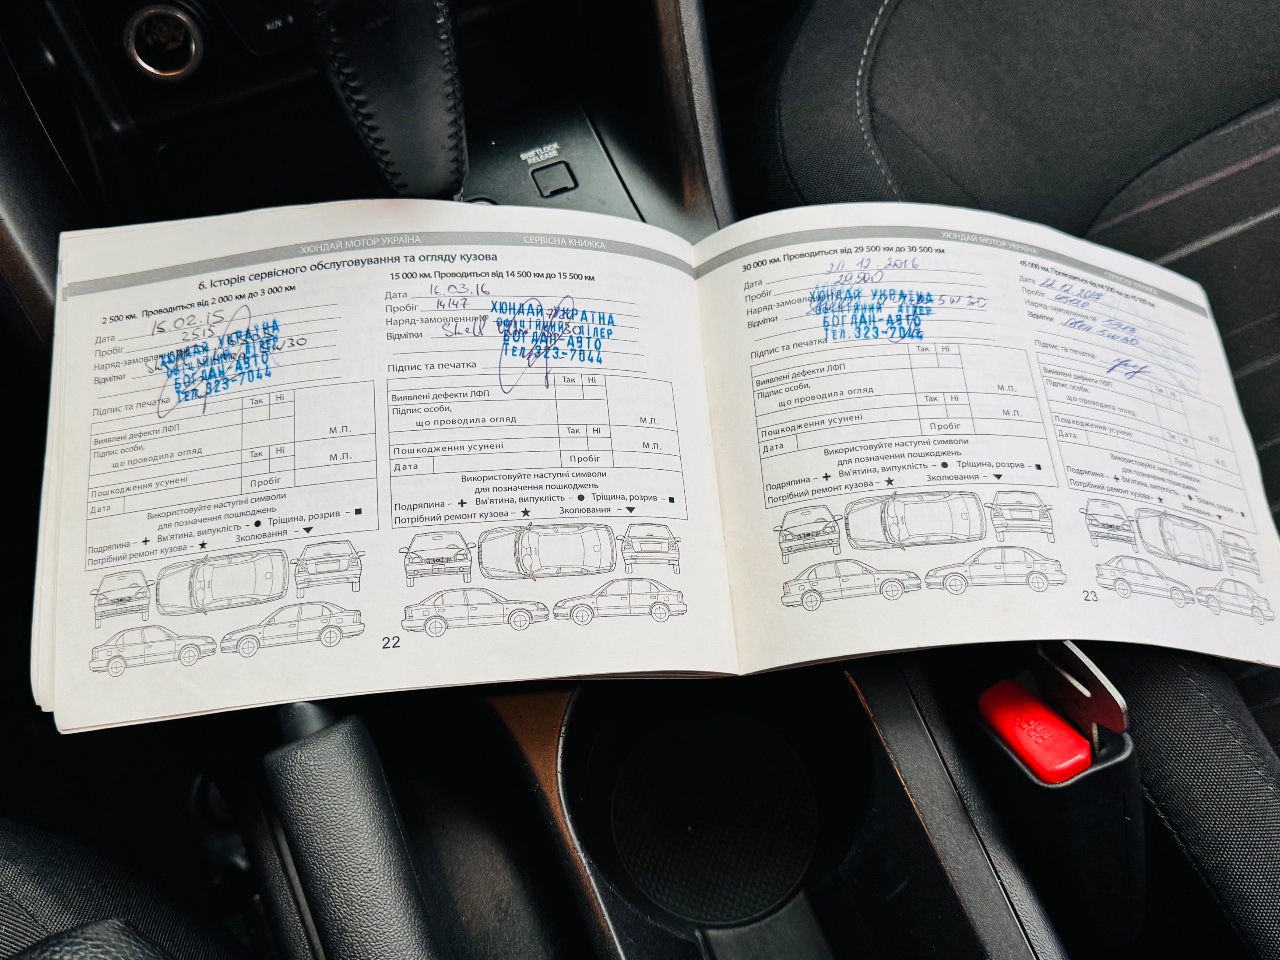 SHIFTLOCK
RELEASE
ХЮНДАЙ МОТОР УКРАЇНА СЕРВІСНА КНИЖКА
6. Історія сервісного обслуговування та огляду кузова
2 500 км. Проводиться від 2 000 км до 3 000 км
Дата 15.02.15
Пробіг 2515
Наряд-замовлення
Відмітки W30
ХЮНДАЙ УКРАЇНА
ОФІЦІЙНИЙ ДІЛЕР
БОГДАН-АВТО
ТЕЛ.323-7044
Підпис та печатка
Виявлені дефекти ЛФП Так Ні
Підпис особи,
що проводила огляд М.П.
Так Ні
Пошкодження усунені М.П.
Дата Пробіг
Використовуйте наступні символи
для позначення пошкоджень
Подряпина – Вм'ятина, випуклість – Тріщина, розрив –
Потрібний ремонт кузова – Зколювання –
15 000 км. Проводиться від 14 500 км до 15 500 км
Дата 16.03.16
Пробіг 14147
Наряд-замовлення№
Відмітки Shell
ХЮНДАЙ УКРАЇНА
ОФІЦІЙНИЙ ДІЛЕР
БОГДАН-АВТО
ТЕЛ.323-7044
Підпис та печатка
Виявлені дефекти ЛФП Так Ні
Підпис особи,
що проводила огляд М.П.
Так Ні
Пошкодження усунені М.П.
Дата Пробіг
Використовуйте наступні символи
для позначення пошкоджень
Подряпина – Вм'ятина, випуклість – Тріщина, розрив –
Потрібний ремонт кузова – Зколювання –
22
ХЮНДАЙ МОТОР УКРАЇНА СЕРВІСНА КНИЖКА
30 000 км. Проводиться від 29 500 км до 30 500 км
Дата 20.12.2016
Пробіг 29500
Наряд-замовлення 5W30
Відмітки
ХЮНДАЙ УКРАЇНА
ОФІЦІЙНИЙ ДІЛЕР
БОГДАН-АВТО
ТЕЛ.323-7044
Підпис та печатка
Виявлені дефекти ЛФП Так Ні
Підпис особи,
що проводила огляд М.П.
Так Ні
Пошкодження усунені М.П.
Дата Пробіг
Використовуйте наступні символи
для позначення пошкоджень
Подряпина – Вм'ятина, випуклість – Тріщина, розрив –
Потрібний ремонт кузова – Зколювання –
45 000 км. Проводиться від 44 500 км до 45 500 км
Дата
Пробіг
Наряд-замовлення №
Відмітки
Підпис та печатка
Виявлені дефекти ЛФП Так Ні
Підпис особи,
що проводила огляд М.П.
Так Ні
Пошкодження усунені М.П.
Дата Пробіг
Використовуйте наступні символи
для позначення пошкоджень
Подряпина – Вм'ятина, випуклість – Тріщина, розрив –
Потрібний ремонт кузова – Зколювання –
23
PRESS